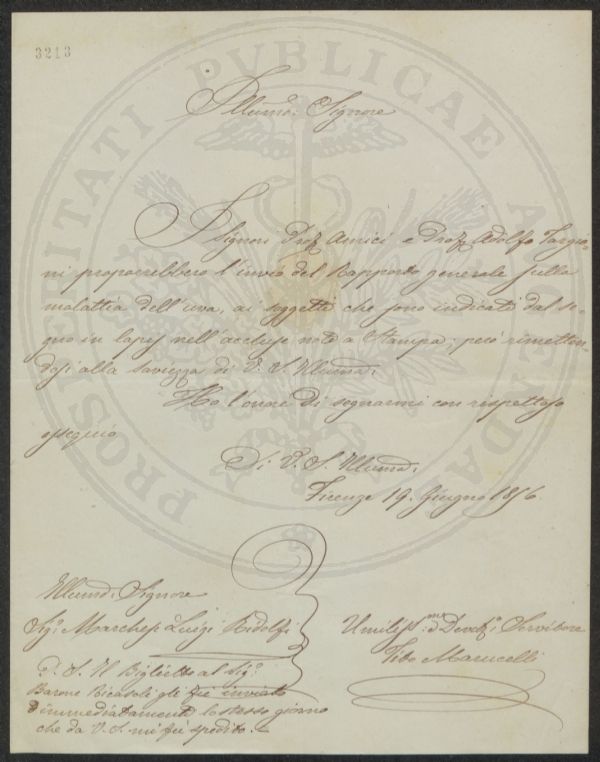 3213
Illumo: Signore
I Signori Prof. Amici e Prof. Adolfo Targio-
ni proporrebbero l'invio del Rapporto generale sulla
malattia dell'uva, ai soggetti che sono indicati dal se-
gno in lapis nell'acclusa nota a Stampa; però rimetten-
dosi alla saviezza di V. S. Illuma:
Ho l'onore di segnarmi con rispettoso
ossequio
Di V. S. Illuma:
Firenze 19. Giugno 1856.
Illumo: Signore
Sigr. Marchese Luigi Ridolfi
Umiliss.mo Devot.o Servitore
Vito Marucelli
P. S. Il Biglietto al Sigr.
Barone Ricasoli gli fu inviato
immediatamente lo stesso giorno
che da V. S. mi fu spedito.
PROSPERITATI PVBLICAE AVGENDAE